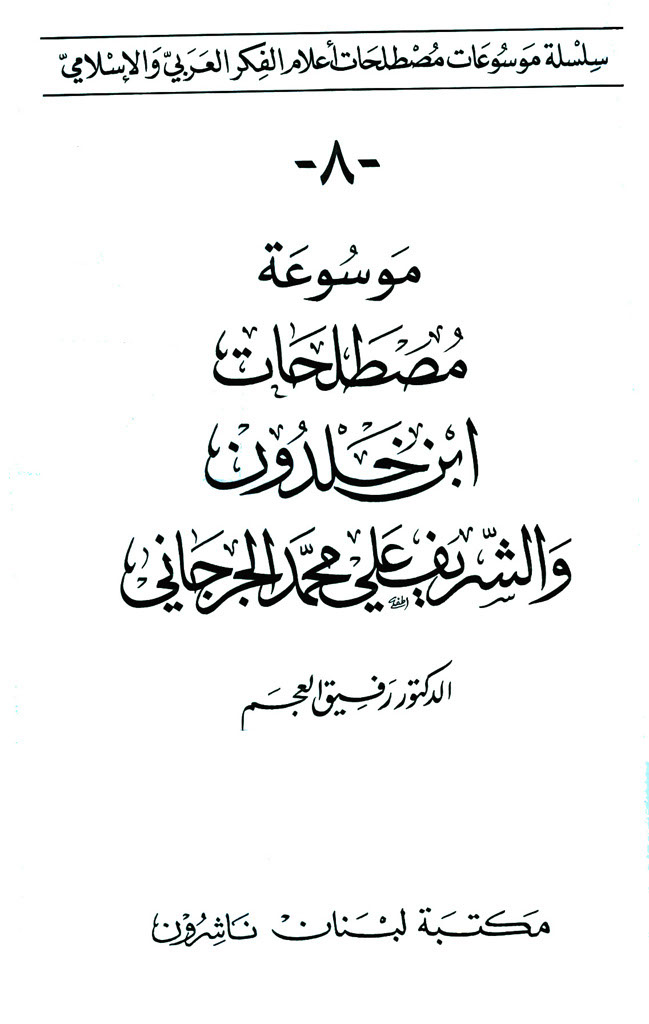 سِلْسِلة مَوسُوعَات مُصْطلحَات أعلام الفِكر العَرَبيّ وَالإسْلاميّ
-٨-
مَوسُوعَة
مُصْطَلحَات
ابْن خَلدُون
وَالشّريف عَلي محمَّد الجرجَاني
الدكتور رَفيق العجم
مَكتبَة لبْنَان نَاشِرُون